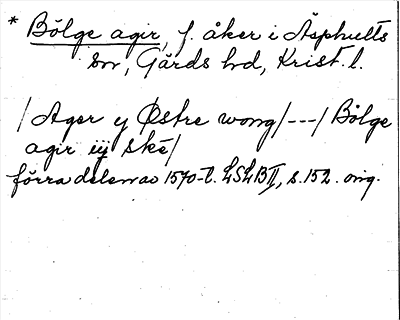 * Bölge agir, f. åker i Äsphults
sn, Gärds hd, Krist. l.
/Ager y Østre wong/---/Bölge
agir iij skē/
förra delen av 1570-t. LSLBII, s. 152. orig.